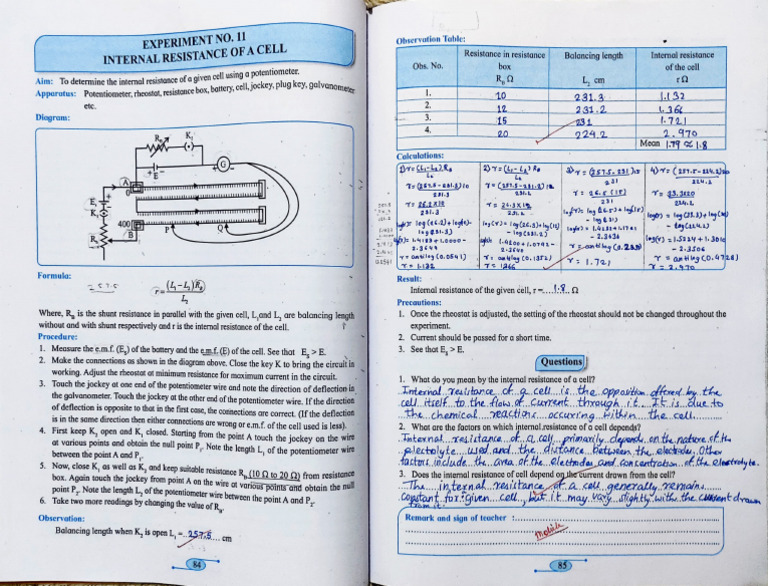 EXPERIMENT NO. 11
INTERNAL RESISTANCE OF A CELL
Aim: To determine the internal resistance of a given cell using a potentiometer.
Apparatus: Potentiometer, rheostat, resistance box, battery, cell, jockey, plug key, galvanometer
etc.
Diagram:
R_B K_2
E G
A
0
E_1
K_1
400
B P Q
R_h
Formula:
= 257.5
r = (L_1 – L_2) R_B / L_2
Where, R_B is the shunt resistance in parallel with the given cell, L_1 and L_2 are balancing length
without and with shunt respectively and r is the internal resistance of the cell.
Procedure:
1. Measure the e.m.f. (E_B) of the battery and the e.m.f. (E) of the cell. See that E_B > E.
2. Make the connections as shown in the diagram above. Close the key K to bring the circuit in
working. Adjust the rheostat at minimum resistance for maximum current in the circuit.
3. Touch the jockey at one end of the potentiometer wire and note the direction of deflection in
the galvanometer. Touch the jockey at the other end of the potentiometer wire. If the direction
of deflection is opposite to that in the first case, the connections are correct. (If the deflection
is in the same direction then either connections are wrong or e.m.f. of the cell used is less).
4. First keep K_1 open and K_1 closed. Starting from the point A touch the jockey on the wire
at various points and obtain the null point P_1. Note the length L_1 of the potentiometer wire
between the point A and P_1.
5. Now, close K_1 as well as K_2 and keep suitable resistance R_B (10 Ω to 20 Ω) from resistance
box. Again touch the jockey from point A on the wire at various points and obtain the null
point P_2. Note the length L_2 of the potentiometer wire between the point A and P_2.
6. Take two more readings by changing the value of R_B.
Observation:
Balancing length when K_2 is open L_1 = 257.5 cm
84
Observation Table:
Obs. No. Resistance in resistance box R_B Ω Balancing length L_2 cm Internal resistance of the cell r Ω
1. 10 231.3 1.132
2. 12 231.2 1.366
3. 15 231 1.721
4. 20 224.2 2.970
Mean 1.79 ≈ 1.8
Calculations:
1) r = (L_1-L_2) R_B / L_2
r = (257.5-231.3) 10 / 231.3
r = 26.2 X 10 / 231.3
log(r) = log(26.2) + log(10) - log(231.3)
log(r) = 1.4183 + 1.0000 - 2.3642
r = antilog (0.0541)
r = 1.132
2) r = (L_1-L_2) R_B / L_2
r = (257.5-231.2) 12 / 231.2
r = 26.3 X 12 / 231.2
log(r) = log(26.3) + log(12) - log(231.2)
log(r) = 1.4200 + 1.0792 - 2.3640
r = antilog (0.1352)
r = 1366
3) r = (257.5-231) 15 / 231
r = 26.5 (15) / 231
log(r) = log(26.5) + log(15) - log(231)
log(r) = 1.4232 + 1.1761 - 2.3636
r = antilog (0.235)
r = 1.721
4) r = (257.5-224.2) 20 / 224.2
r = 33.3 X 20 / 224.2
log(r) = log(33.3) + log(20) - log(224.2)
log(r) = 1.5224 + 1.3010 - 2.3506
r = antilog (0.4728)
r = 2.970
Result:
Internal resistance of the given cell, r = 1.8 Ω
Precautions:
1. Once the rheostat is adjusted, the setting of the rheostat should not be changed throughout the
experiment.
2. Current should be passed for a short time.
3. See that E_B > E.
Questions
1. What do you mean by the internal resistance of a cell?
Internal resistance of a cell is the opposition offered by the
cell itself to the flow of current through it. It is due to
the chemical reactions occurring within the cell.
2. What are the factors on which internal resistance of a cell depends?
Internal resistance of a cell primarily depends on the nature of the
electrolyte used and the distance between the electrodes. Other
factors include the area of the electrodes and concentration of the electrolyte.
3. Does the internal resistance of cell depend on the current drawn from the cell?
The internal resistance of a cell generally remains
constant for given cell, but it may vary slightly with the current drawn
from it.
Remark and sign of teacher :
85